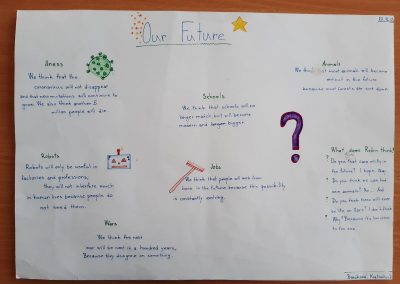 Our Future
Illness
We think that the
coronavirus will not disappear
and that new mutations will continue to
grow. We also think another 5
million people will die.
Schools
We think that schools will no
longer match but will become
modern and bigger.
Animals
We think that most animals will become
extinct in the future
because most forests are cut down.
Robots
Robots will only be useful in
factories and professions,
they will not interfere much
in human lives because people do
not need them.
Jobs
We think that people will work from
home in the future because this possibility
is constantly evolving.
Wars
We think the next
war will be next in a hundred years,
Because they disagree on something.
What does Robin think?
Do you
future? I hope
Do you think
Do you think there will ever
be life on Mars? I don't think
Why? Because it's